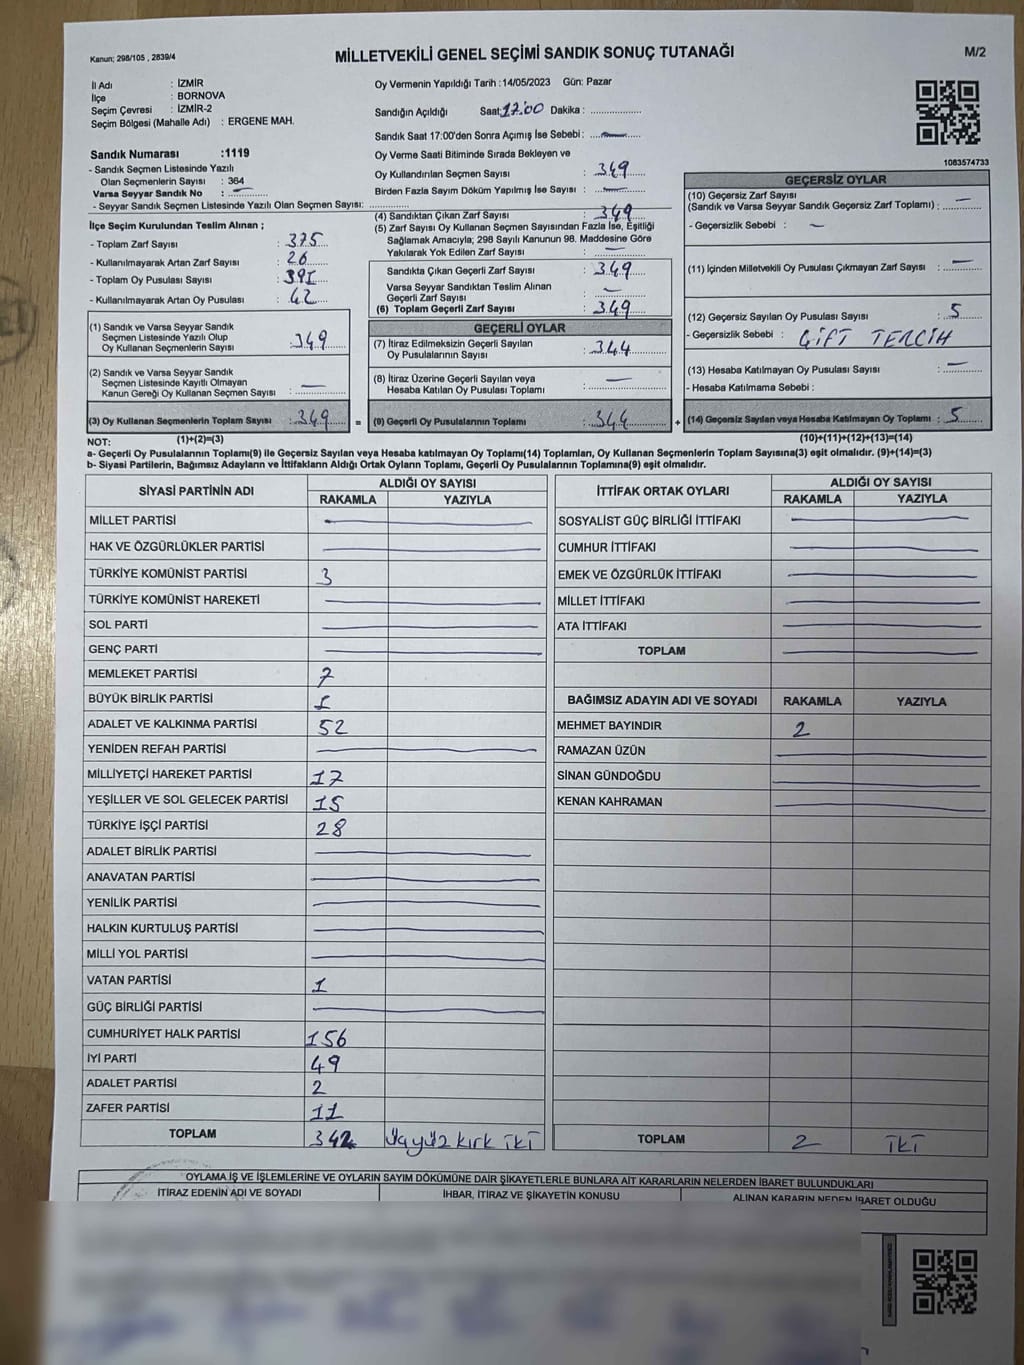 Kanun; 298/105 , 2839/4
MİLLETVEKİLİ GENEL SEÇİMİ SANDIK SONUÇ TUTANAĞI
M/2
İl Adı : İZMİR
İlçe : BORNOVA
Seçim Çevresi : İZMİR-2
Seçim Bölgesi (Mahalle Adı) : ERGENE MAH.
Oy Vermenin Yapıldığı Tarih :14/05/2023 Gün: Pazar
Sandığın Açıldığı Saat:17:00 Dakika : ..............
Sandık Saat 17:00'den Sonra Açılmış İse Sebebi : —
Oy Verme Saati Bitiminde Sırada Bekleyen ve
Oy Kullandırılan Seçmen Sayısı : 349
Birden Fazla Sayım Döküm Yapılmış İse Sayısı : —
1083574733
Sandık Numarası :1119
- Sandık Seçmen Listesinde Yazılı
Olan Seçmenlerin Sayısı : 364
Varsa Seyyar Sandık No : —
- Seyyar Sandık Seçmen Listesinde Yazılı Olan Seçmen Sayısı: ..............
İlçe Seçim Kurulundan Teslim Alınan ;
- Toplam Zarf Sayısı : 375
- Kullanılmayarak Artan Zarf Sayısı : 26
- Toplam Oy Pusulası Sayısı : 391
- Kullanılmayarak Artan Oy Pusulası : 42
(1) Sandık ve Varsa Seyyar Sandık
Seçmen Listesinde Yazılı Olup
Oy Kullanan Seçmenlerin Sayısı : 349
(2) Sandık ve Varsa Seyyar Sandık
Seçmen Listesinde Kayıtlı Olmayan
Kanun Gereği Oy Kullanan Seçmen Sayısı : —
(3) Oy Kullanan Seçmenlerin Toplam Sayısı : 349
(1)+(2)=(3)
(4) Sandıktan Çıkan Zarf Sayısı : 349
(5) Zarf Sayısı Oy Kullanan Seçmen Sayısından Fazla İse, Eşitliği
Sağlamak Amacıyla; 298 Sayılı Kanunun 98. Maddesine Göre
Yakılarak Yok Edilen Zarf Sayısı : —
Sandıkta Çıkan Geçerli Zarf Sayısı : 349
Varsa Seyyar Sandıktan Teslim Alınan
Geçerli Zarf Sayısı : —
(6) Toplam Geçerli Zarf Sayısı : 349
GEÇERLİ OYLAR
(7) İtiraz Edilmeksizin Geçerli Sayılan
Oy Pusulalarının Sayısı : 344
(8) İtiraz Üzerine Geçerli Sayılan veya
Hesaba Katılan Oy Pusulası Toplamı : —
= (9) Geçerli Oy Pusulalarının Toplamı : 344 +
GEÇERSİZ OYLAR
(10) Geçersiz Zarf Sayısı
(Sandık ve Varsa Seyyar Sandık Geçersiz Zarf Toplamı) : —
- Geçersizlik Sebebi : —
(11) İçinden Milletvekili Oy Pusulası Çıkmayan Zarf Sayısı : —
(12) Geçersiz Sayılan Oy Pusulası Sayısı : 5
- Geçersizlik Sebebi : ÇİFT TERCİH
(13) Hesaba Katılmayan Oy Pusulası Sayısı : —
- Hesaba Katılmama Sebebi :
(14) Geçersiz Sayılan veya Hesaba Katılmayan Oy Toplamı : 5
(10)+(11)+(12)+(13)=(14)
NOT:
a- Geçerli Oy Pusulalarının Toplamı(9) ile Geçersiz Sayılan veya Hesaba katılmayan Oy Toplamı(14) Toplamları, Oy Kullanan Seçmenlerin Toplam Sayısına(3) eşit olmalıdır. (9)+(14)=(3)
b- Siyasi Partilerin, Bağımsız Adayların ve İttifakların Aldığı Ortak Oyların Toplamı, Geçerli Oy Pusulalarının Toplamına(9) eşit olmalıdır.
SİYASİ PARTİNİN ADI ALDIĞI OY SAYISI
RAKAMLA YAZIYLA
MİLLET PARTİSİ —
HAK VE ÖZGÜRLÜKLER PARTİSİ —
TÜRKİYE KOMÜNİST PARTİSİ 3
TÜRKİYE KOMÜNİST HAREKETİ —
SOL PARTİ —
GENÇ PARTİ —
MEMLEKET PARTİSİ 7
BÜYÜK BİRLİK PARTİSİ 1
ADALET VE KALKINMA PARTİSİ 52
YENİDEN REFAH PARTİSİ —
MİLLİYETÇİ HAREKET PARTİSİ 17
YEŞİLLER VE SOL GELECEK PARTİSİ 15
TÜRKİYE İŞÇİ PARTİSİ 28
ADALET BİRLİK PARTİSİ —
ANAVATAN PARTİSİ —
YENİLİK PARTİSİ —
HALKIN KURTULUŞ PARTİSİ —
MİLLİ YOL PARTİSİ —
VATAN PARTİSİ 1
GÜÇ BİRLİĞİ PARTİSİ —
CUMHURİYET HALK PARTİSİ 156
İYİ PARTİ 49
ADALET PARTİSİ 2
ZAFER PARTİSİ 11
TOPLAM 342 Üçyüz kırk iki
İTTİFAK ORTAK OYLARI ALDIĞI OY SAYISI
RAKAMLA YAZIYLA
SOSYALİST GÜÇ BİRLİĞİ İTTİFAKI —
CUMHUR İTTİFAKI —
EMEK VE ÖZGÜRLÜK İTTİFAKI —
MİLLET İTTİFAKI —
ATA İTTİFAKI —
TOPLAM —
BAĞIMSIZ ADAYIN ADI VE SOYADI RAKAMLA YAZIYLA
MEHMET BAYINDIR 2
RAMAZAN ÜZÜN —
SİNAN GÜNDOĞDU —
KENAN KAHRAMAN —
TOPLAM 2 İKİ
OYLAMA İŞ VE İŞLEMLERİNE VE OYLARIN SAYIM DÖKÜMÜNE DAİR ŞİKAYETLERLE BUNLARA AİT KARARLARIN NELERDEN İBARET BULUNDUKLARI
İTİRAZ EDENİN ADI VE SOYADI İHBAR, İTİRAZ VE ŞİKAYETİN KONUSU ALINAN KARARIN NEDEN İBARET OLDUĞU